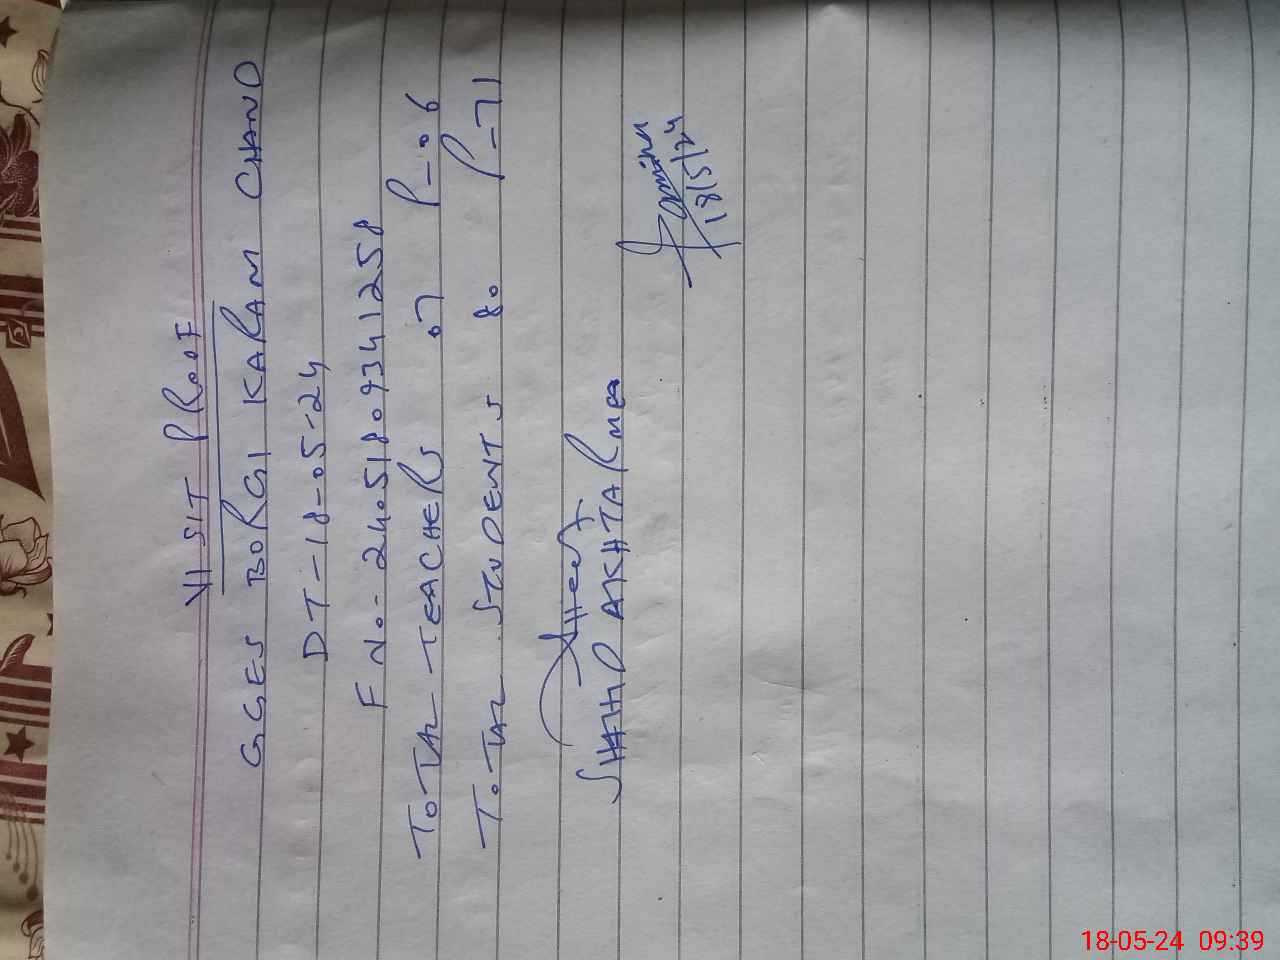 VISIT PROOF
GGES BORGI KARAM CHAND
DT-18-05-24
F No- 24051809341258
TOTAL TEACHERS 07 P-06
TOTAL STUDENTS 80 P-71
SHAHID AKHTAR MEA
18/5/24
18-05-24 09:39